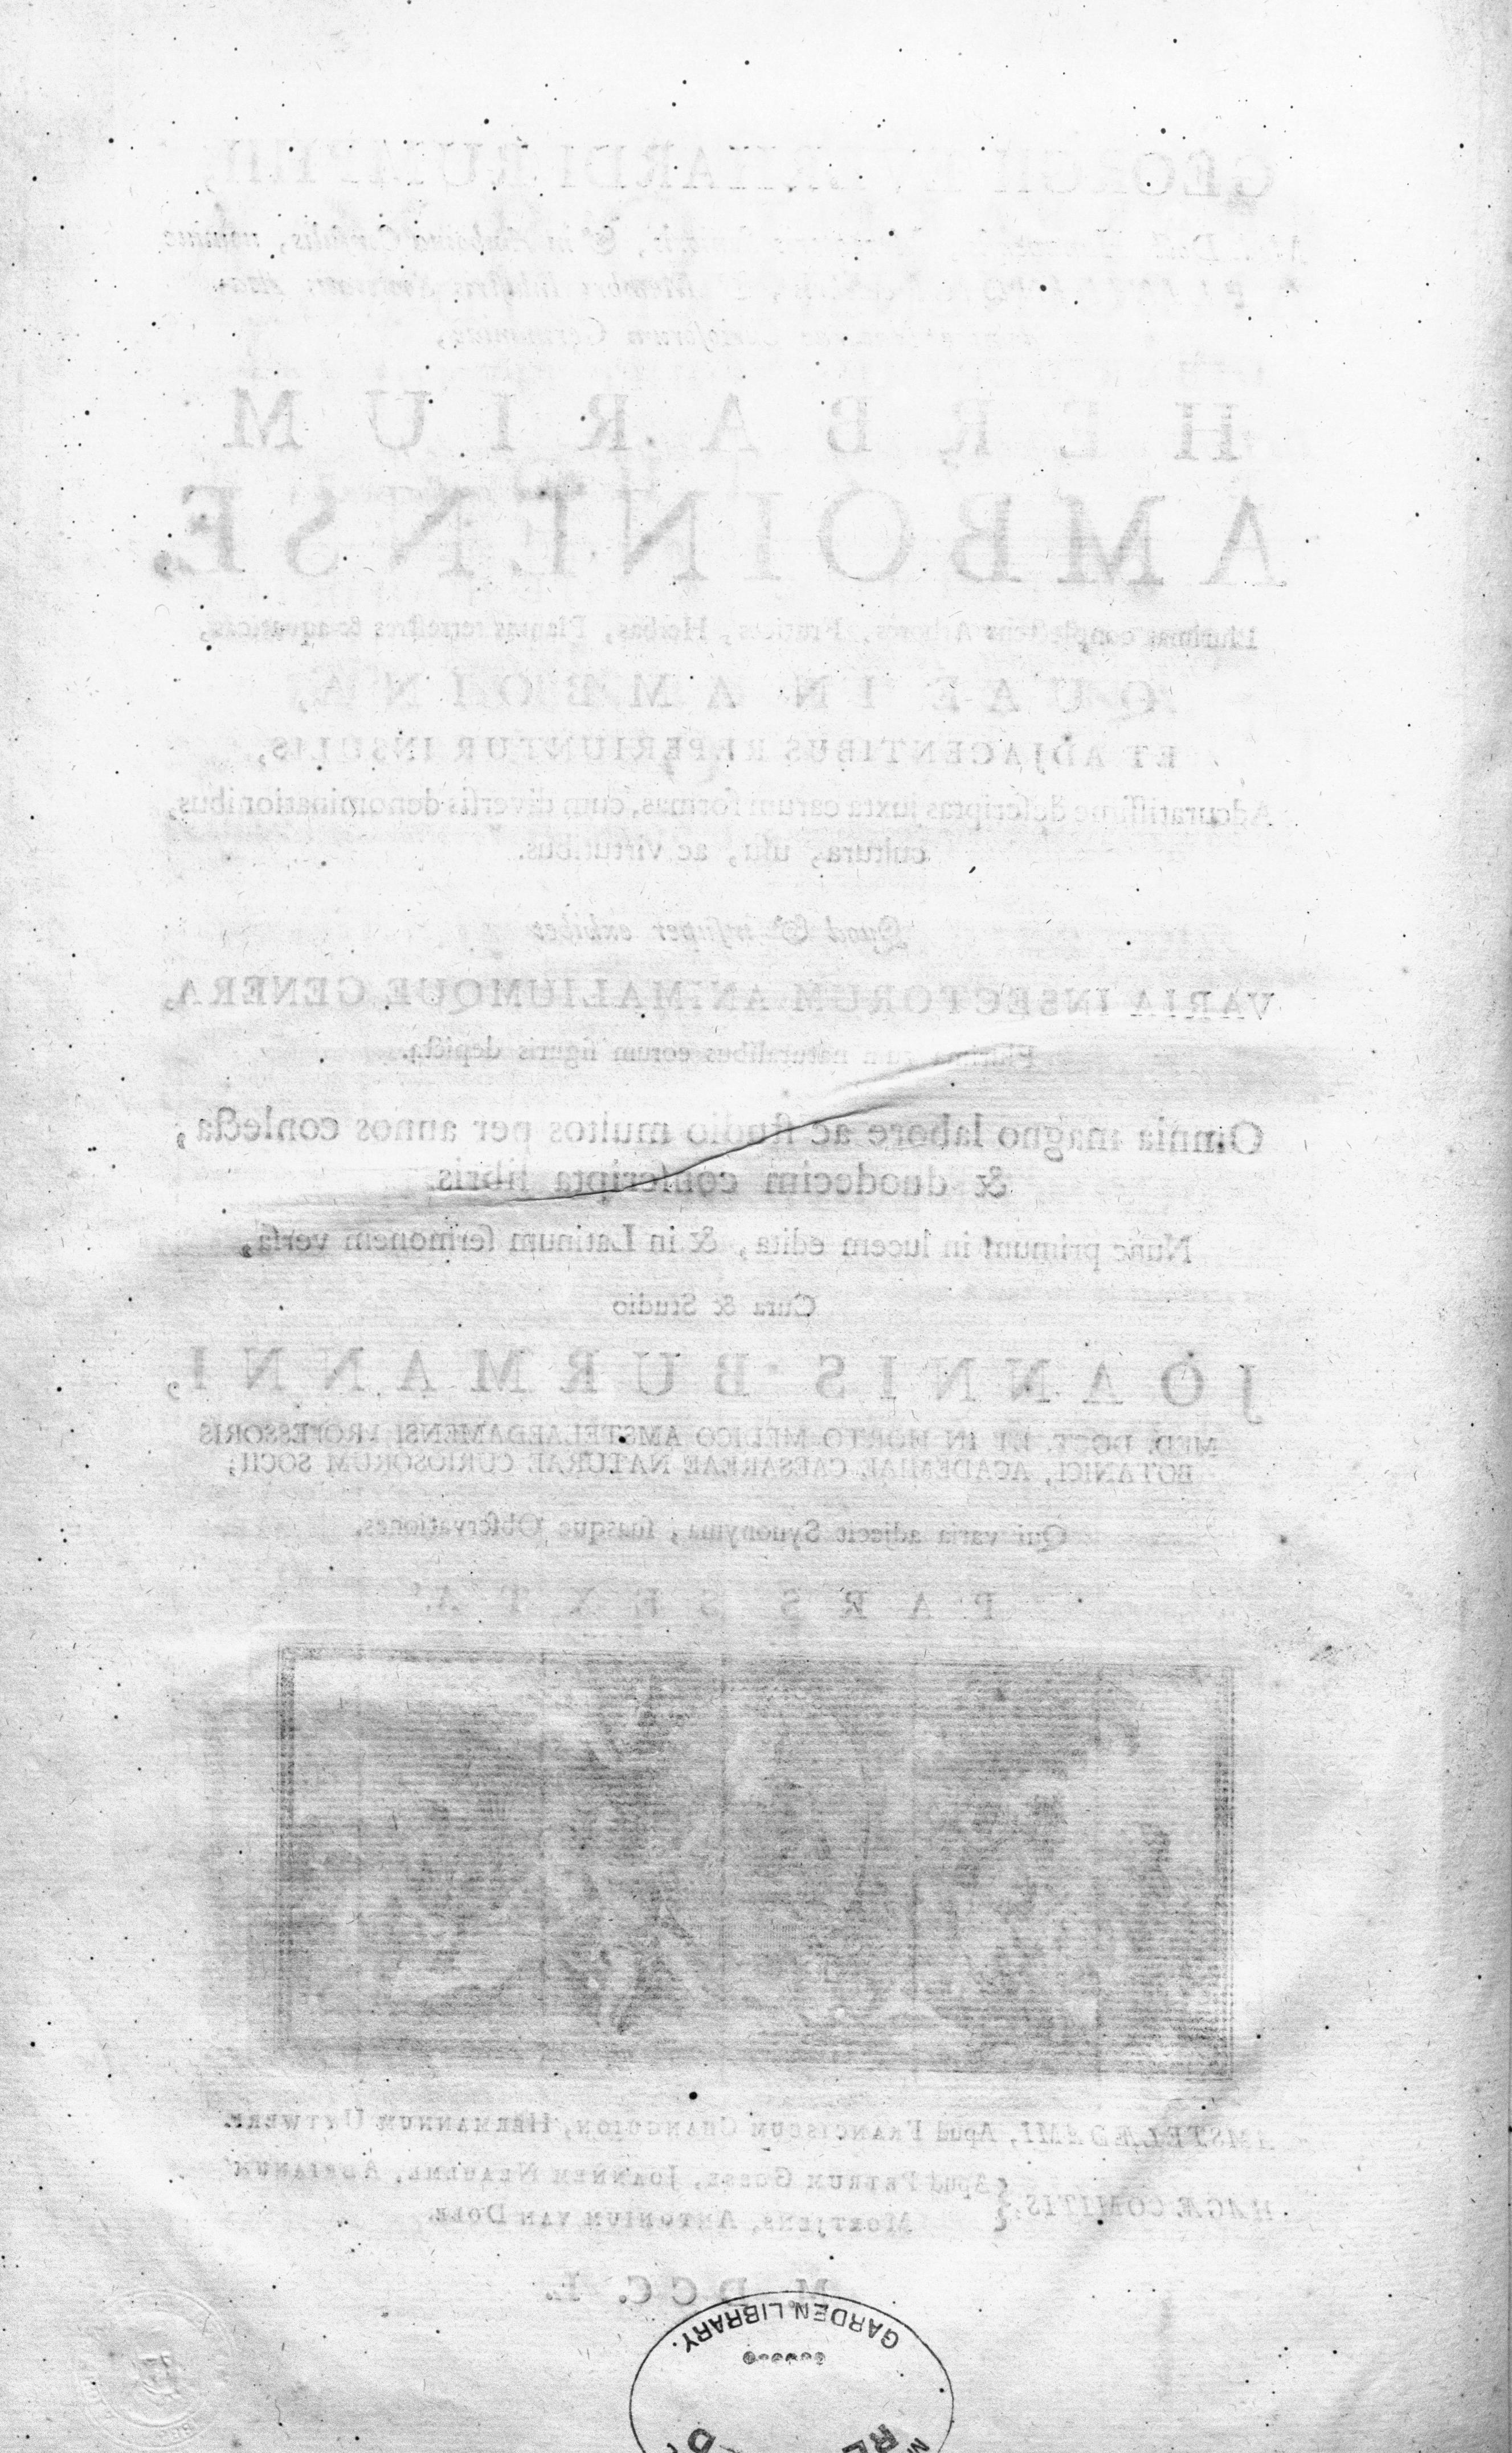 GEORGII EVERHARDI RUMPHII,
& in Amboina Consulis,
HERBARIUM
AMBOINENSE,
Plurimas conplectens Arbores, Frutices, Herbas, Plantas terrestres & aquaticas,
QUAE IN AMBOINA,
ET ADJACENTIBUS REPERIUNTUR INSULIS,
Adcuratissime descriptas juxta earum formas, cum diversis denominationibus,
cultura, usu, ac virtutibus.
Quod & insuper exhibet
VARIA INSECTORUM ANIMALIUMQUE GENERA,
Plurima cum naturalibus eorum figuris depicta.
Omnia magno labore ac studio multos per annos conlecta,
& duodecim conscripta libris
Nunc primum in lucem edita, & in Latinum sermonem versa,
Cura & Studio
JOANNIS BURMANNI,
MED. DOCT. ET IN HORTO MEDICO AMSTELAEDAMENSI PROFESSORIS
BOTANICI, ACADEMIAE CAESAREAE NATURAE CURIOSORUM SOCII;
Qui varia adjecit Synonyma, suasque Observationes.
PARS SEXTA.
AMSTELÆDAMI, Apud Franciscum Changuion, Hermannum Uytwerf.
HAGÆ COMITIS, Apud Petrum Gosse, Joannem Neaulme, Adrianum
Moetjens, Antonium van Dole.
MDCC. L.
GARDEN LIBRARY.